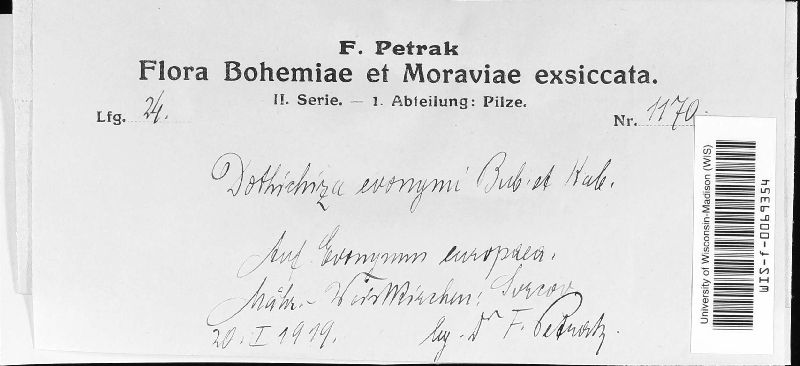 F. Petrak
Flora Bohemiae et Moraviae exsiccata.
II. Serie. — 1. Abteilung: Pilze.
Lfg. 24.
Nr. 1170.
Dothichiza evonymi Bub. et Kab.
Auf Evonymus europaea.
Mähr.-Weisskirchen: Svrcov
20. I 1919. leg. Dr F. Petrak.
University of Wisconsin-Madison (WIS)
WIS-f-0069354